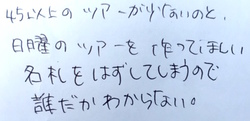 45以上のツアーが少ないのと、
日曜のツアーを作ってほしい
名札をはずしてしまうので
誰だかわからない。